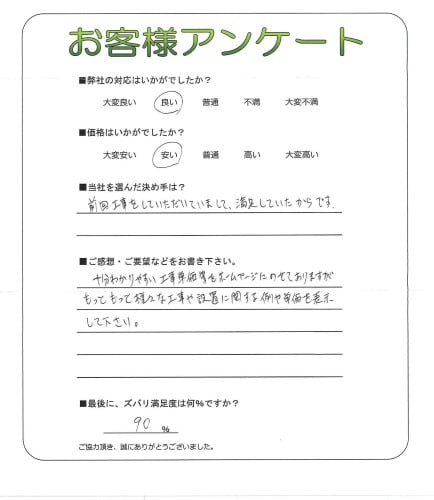 お客様アンケート
■弊社の対応はいかがでしたか？
大変良い 良い 普通 不満 大変不満
■価格はいかがでしたか？
大変安い 安い 普通 高い 大変高い
■当社を選んだ決め手は？
前回工事をしていただいていまして、満足していたからです
■ご感想・ご要望などをお書き下さい。
十分わかりやすい工事単価等をホームページにのせてありますが
もってもって様々な工事や設置に関する例や単価を表示
して下さい。
■最後に、ズバリ満足度は何％ですか？
90 ％
ご協力頂き、誠にありがとうございました。